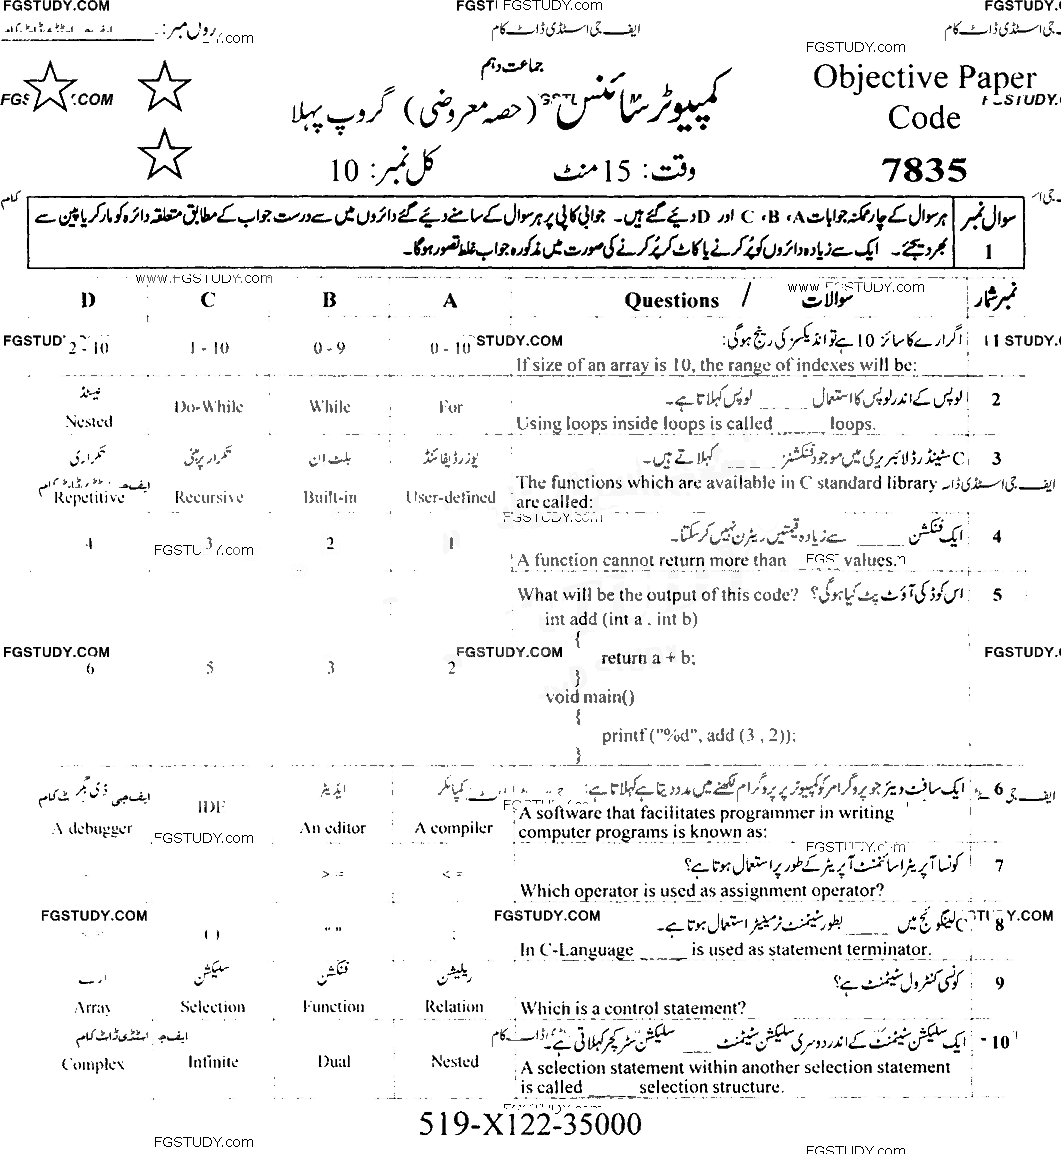 FGSTUDY.COM FGSTUDY.com FGSTUDY.
رول نمبر:
ایف جی اسٹڈی ڈاٹ کام
FGSTUDY.com
جماعت دہم
Objective Paper
Code
7835
کمپیوٹر سائنس (حصہ معروضی) گروپ پہلا
وقت: 15 منٹ کل نمبر: 10
سوال نمبر 1
ہر سوال کے چار ممکنہ جوابات A، B، C اور D دیئے گئے ہیں۔ جوابی کاپی پر ہر سوال کے سامنے دیئے گئے دائروں میں سے درست جواب کے مطابق متعلقہ دائرہ کو مارکر یا پین سے
بھر دیجئے۔ ایک سے زیادہ دائروں کو پُر کرنے یا کاٹ کر پُر کرنے کی صورت میں مذکورہ جواب غلط تصور ہوگا۔
www.FGSTUDY.com www.FGSTUDY.com
D C B A Questions / سوالات نمبر شمار
2 - 10 1 - 10 0 - 9 0 - 10 اگر ارے کا سائز 10 ہے تو انڈیکسز کی رینج ہوگی: 1
If size of an array is 10, the range of indexes will be:
نیسٹڈ
Nested Do-While While For
لوپس کے اندر لوپس کا استعمال ____ لوپس کہلاتا ہے۔ 2
Using loops inside loops is called _____ loops.
تکراری تکرار پر مبنی بلٹ ان یوزر ڈیفائنڈ
Repetitive Recursive Built-in User-defined
C سٹینڈرڈ لائبریری میں موجود فنکشنز ____ کہلاتے ہیں۔ 3
The functions which are available in C standard library
are called:
4 3 2 1 ایک فنکشن ____ سے زیادہ قیمتیں ریٹرن نہیں کر سکتا۔ 4
A function cannot return more than values.
What will be the output of this code? اس کوڈ کی آؤٹ پٹ کیا ہوگی؟ 5
int add (int a . int b)
{
return a + b;
}
6 5 3 2
void main()
{
printf ("%d", add (3 , 2));
}
ڈی بگر ایڈیٹر کمپائلر
A debugger IDE An editor A compiler
ایک سافٹ ویئر جو پروگرامر کو کمپیوٹر پر پروگرام لکھنے میں مدد دیتا ہے کہلاتا ہے: 6
A software that facilitates programmer in writing
computer programs is known as:
> = < = کونسا آپریٹر اسائنمنٹ آپریٹر کے طور پر استعمال ہوتا ہے؟ 7
Which operator is used as assignment operator?
FGSTUDY.COM FGSTUDY.COM
( ) " " ; C لینگوئج میں ____ بطور سٹیٹمنٹ ٹرمینیٹر استعمال ہوتا ہے۔ 8
In C-Language _____ is used as statement terminator.
ارے سلیکشن فنکشن ریلیشن
Array Selection Function Relation
کونسی کنٹرول سٹیٹمنٹ ہے؟ 9
Which is a control statement?
Complex Infinite Dual Nested
ایک سلیکشن سٹیٹمنٹ کے اندر دوسری سلیکشن سٹیٹمنٹ ____ سلیکشن سٹرکچر کہلاتی ہے۔ 10
A selection statement within another selection statement
is called _____ selection structure.
519-X122-35000
FGSTUDY.com FGSTUDY.com